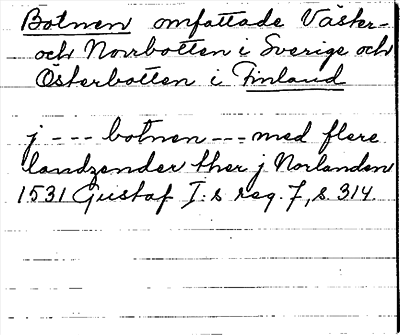 Botnen omfattade Väster-
och Norrbotten i Sverige och
Österbotten i Finland
j --- botnen --- med flere
landzender ther j Norlanden
1531 Gustaf I:s reg. 7, s. 314.